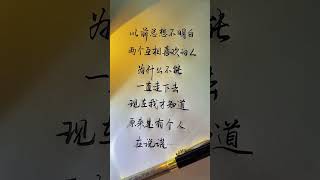 以前总想不明白
两个互相喜欢的人
为什么不能
一直走下去
现在我才知道
原来是有个人
在说谎